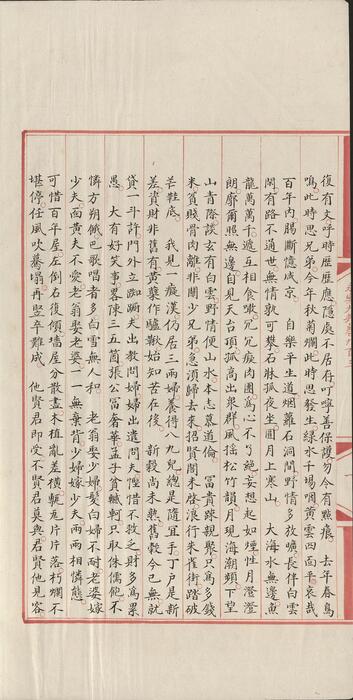 復有文呼時歷歷應隱處不居存叮嚀善保護勿令有點痕　去年春鳥
鳴此時思兄弟今年秋菊爛此時思發生綠水千場咽黃雲四面平哀哉
百年內腸斷憶咸京　自樂平生道煙蘿石洞間野情多放曠長伴白雲
閑有路不通世無情孰可攀石牀孤夜坐圓月上寒山　大海水無邊魚
龍萬萬千遞互相食噉冗冗癡肉團為心不了絕妄想起如煙性月澄澄
朗廓爾照無邊自見天台頂孤高出眾群風搖松竹韻月現海潮頻下望
山青際談玄有白雲野情便山水本志慕道倫　富貴疎親聚只為多錢
米貧賤骨肉離非關少兄弟急須歸去來招賢閣未啟浪行朱雀街踏破
芒鞋底　我見一癡漢仍居三兩婦養得八九兒總是隨宜手丁戶是新
差資財非舊有黃蘗作驢鞦始知苦在後　新穀尚未熟舊穀今已無就
貸一斗許門外立踟躕夫出教問婦婦出遣問夫慳惜不救乏財多為累
愚　大有好笑事略陳三五箇張公富奢華孟子貧轗軻只取侏儒飽不
憐方朔餓巴歌唱者多白雪無人和　老翁娶少婦髮白婦不耐老婆嫁
少夫面黃夫不愛老翁娶老婆一一無棄背少婦嫁少夫兩兩相憐態
可惜百年屋左倒右復傾牆壁分散盡木植亂差橫甎瓦片片落朽爛不
堪停任風吹驀塌再豎卒難成　他賢君即受不賢君莫與君賢他見容